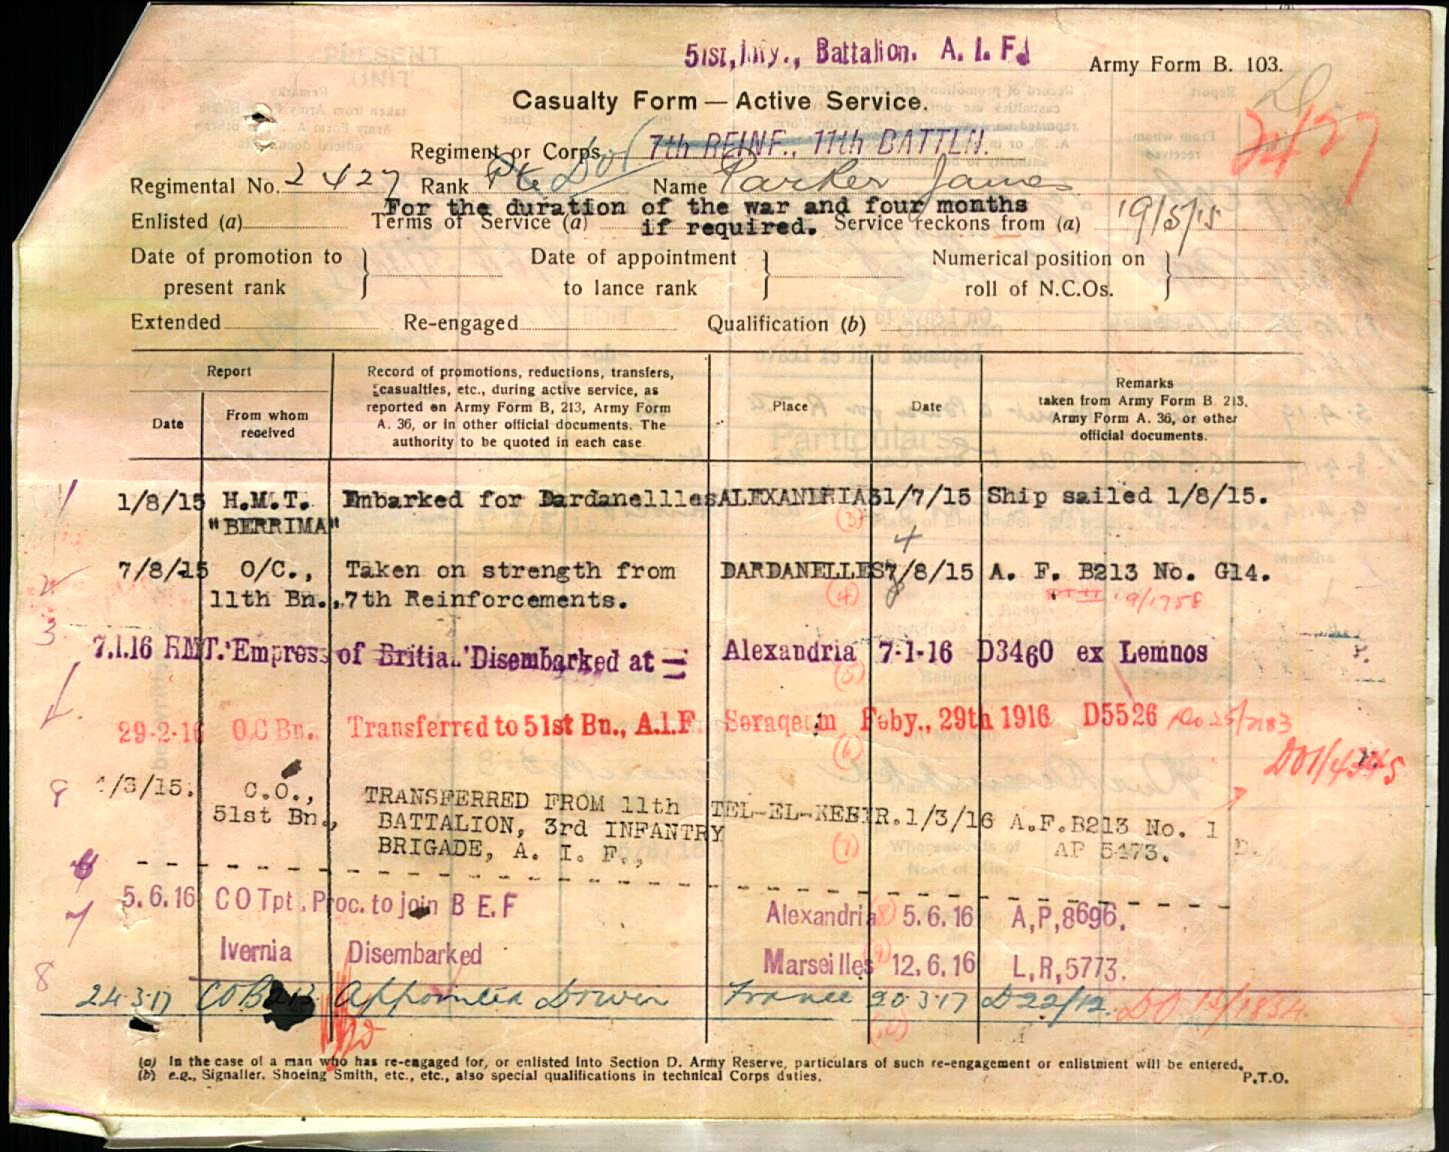 51st, Inty., Battalion. A. I. F.
Army Form B. 103.
Casualty Form — Active Service.
2427
Regiment or Corps 7th REINF., 11th BATTLN.
Regimental No. 2427 Rank Pte Dvr Name Parker James
For the duration of the war and four months
Enlisted (a) Terms of Service (a) if required. Service reckons from (a) 19/5/15
Date of promotion to present rank } Date of appointment to lance rank } Numerical position on roll of N.C.Os. }
Extended Re-engaged Qualification (b)
Report
Date
From whom received
Record of promotions, reductions, transfers,
casualties, etc., during active service, as
reported on Army Form B, 213, Army Form
A. 36, or in other official documents. The
authority to be quoted in each case
Place
Date
Remarks
taken from Army Form B. 213,
Army Form A. 36, or other
official documents.
1/8/15 H.M.T. Embarked for Dardanellles ALEXANDRIA 31/7/15 Ship sailed 1/8/15.
"BERRIMA" (3)
4
7/8/15 O/C., Taken on strength from DARDANELLES 7/8/15 A. F. B213 No. G14.
11th Bn., 7th Reinforcements. (4) 19/1758
3
7.1.16 HMT. 'Empress of Britian.' Disembarked at — Alexandria 7-1-16 D3460 ex Lemnos
(5)
29-2-16 O.C Bn.. Transferred to 51st Bn., A.I.F. Seraqeum Feby., 29th 1916 D5526 Do 25/2183
(6) DO1/4345
1/3/15. C.O., TRANSFERRED FROM 11th TEL-EL-KEBIR. 1/3/16 A.F.B213 No. 1
51st Bn., BATTALION, 3rd INFANTRY AP 5473.
BRIGADE, A. I. F., (7)
5.6.16 C O Tpt. Proc. to join B E.F Alexandria (8) 5.6.16 A,P,8696.
7
Ivernia Disembarked Marseilles (9) 12.6.16 L,R,5773.
8
24.3.17 CO B213 Appointed Driver France 20.3.17 D22/12. DO 12/1834.
(10)
(a) In the case of a man who has re-engaged for, or enlisted into Section D. Army Reserve, particulars of such re-engagement or enlistment will be entered.
(b) e.g., Signaller. Shoeing Smith, etc., etc., also special qualifications in technical Corps duties.
P.T.O.